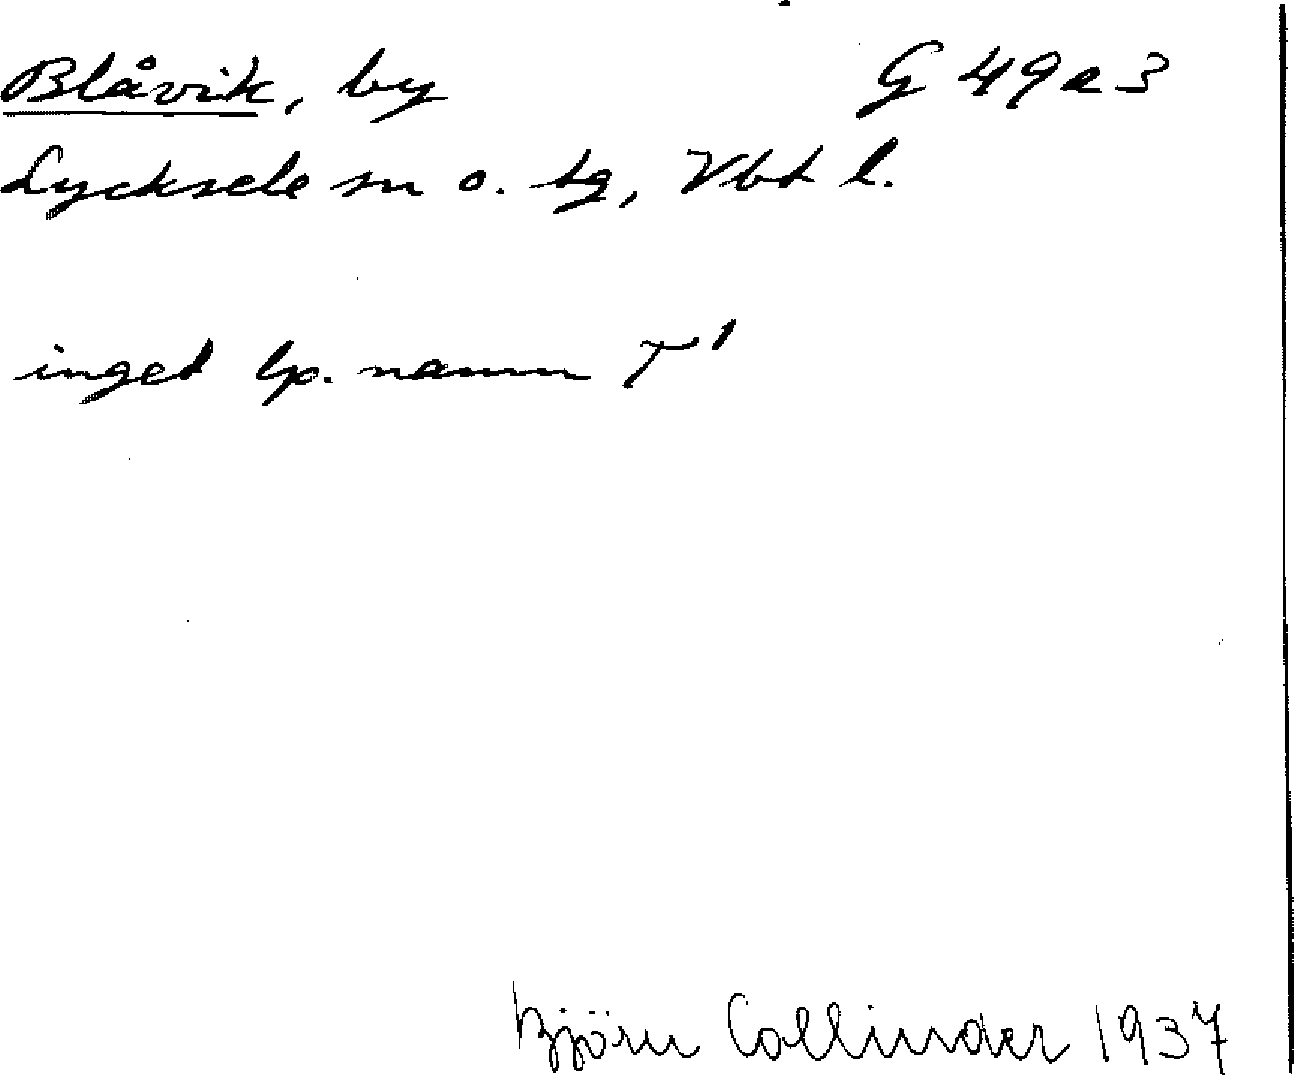 Blåvik, by G 49 a 3
Lycksele sn o. tg, Vbt l.
inget lp. namn T'
Björn Collinder 1937